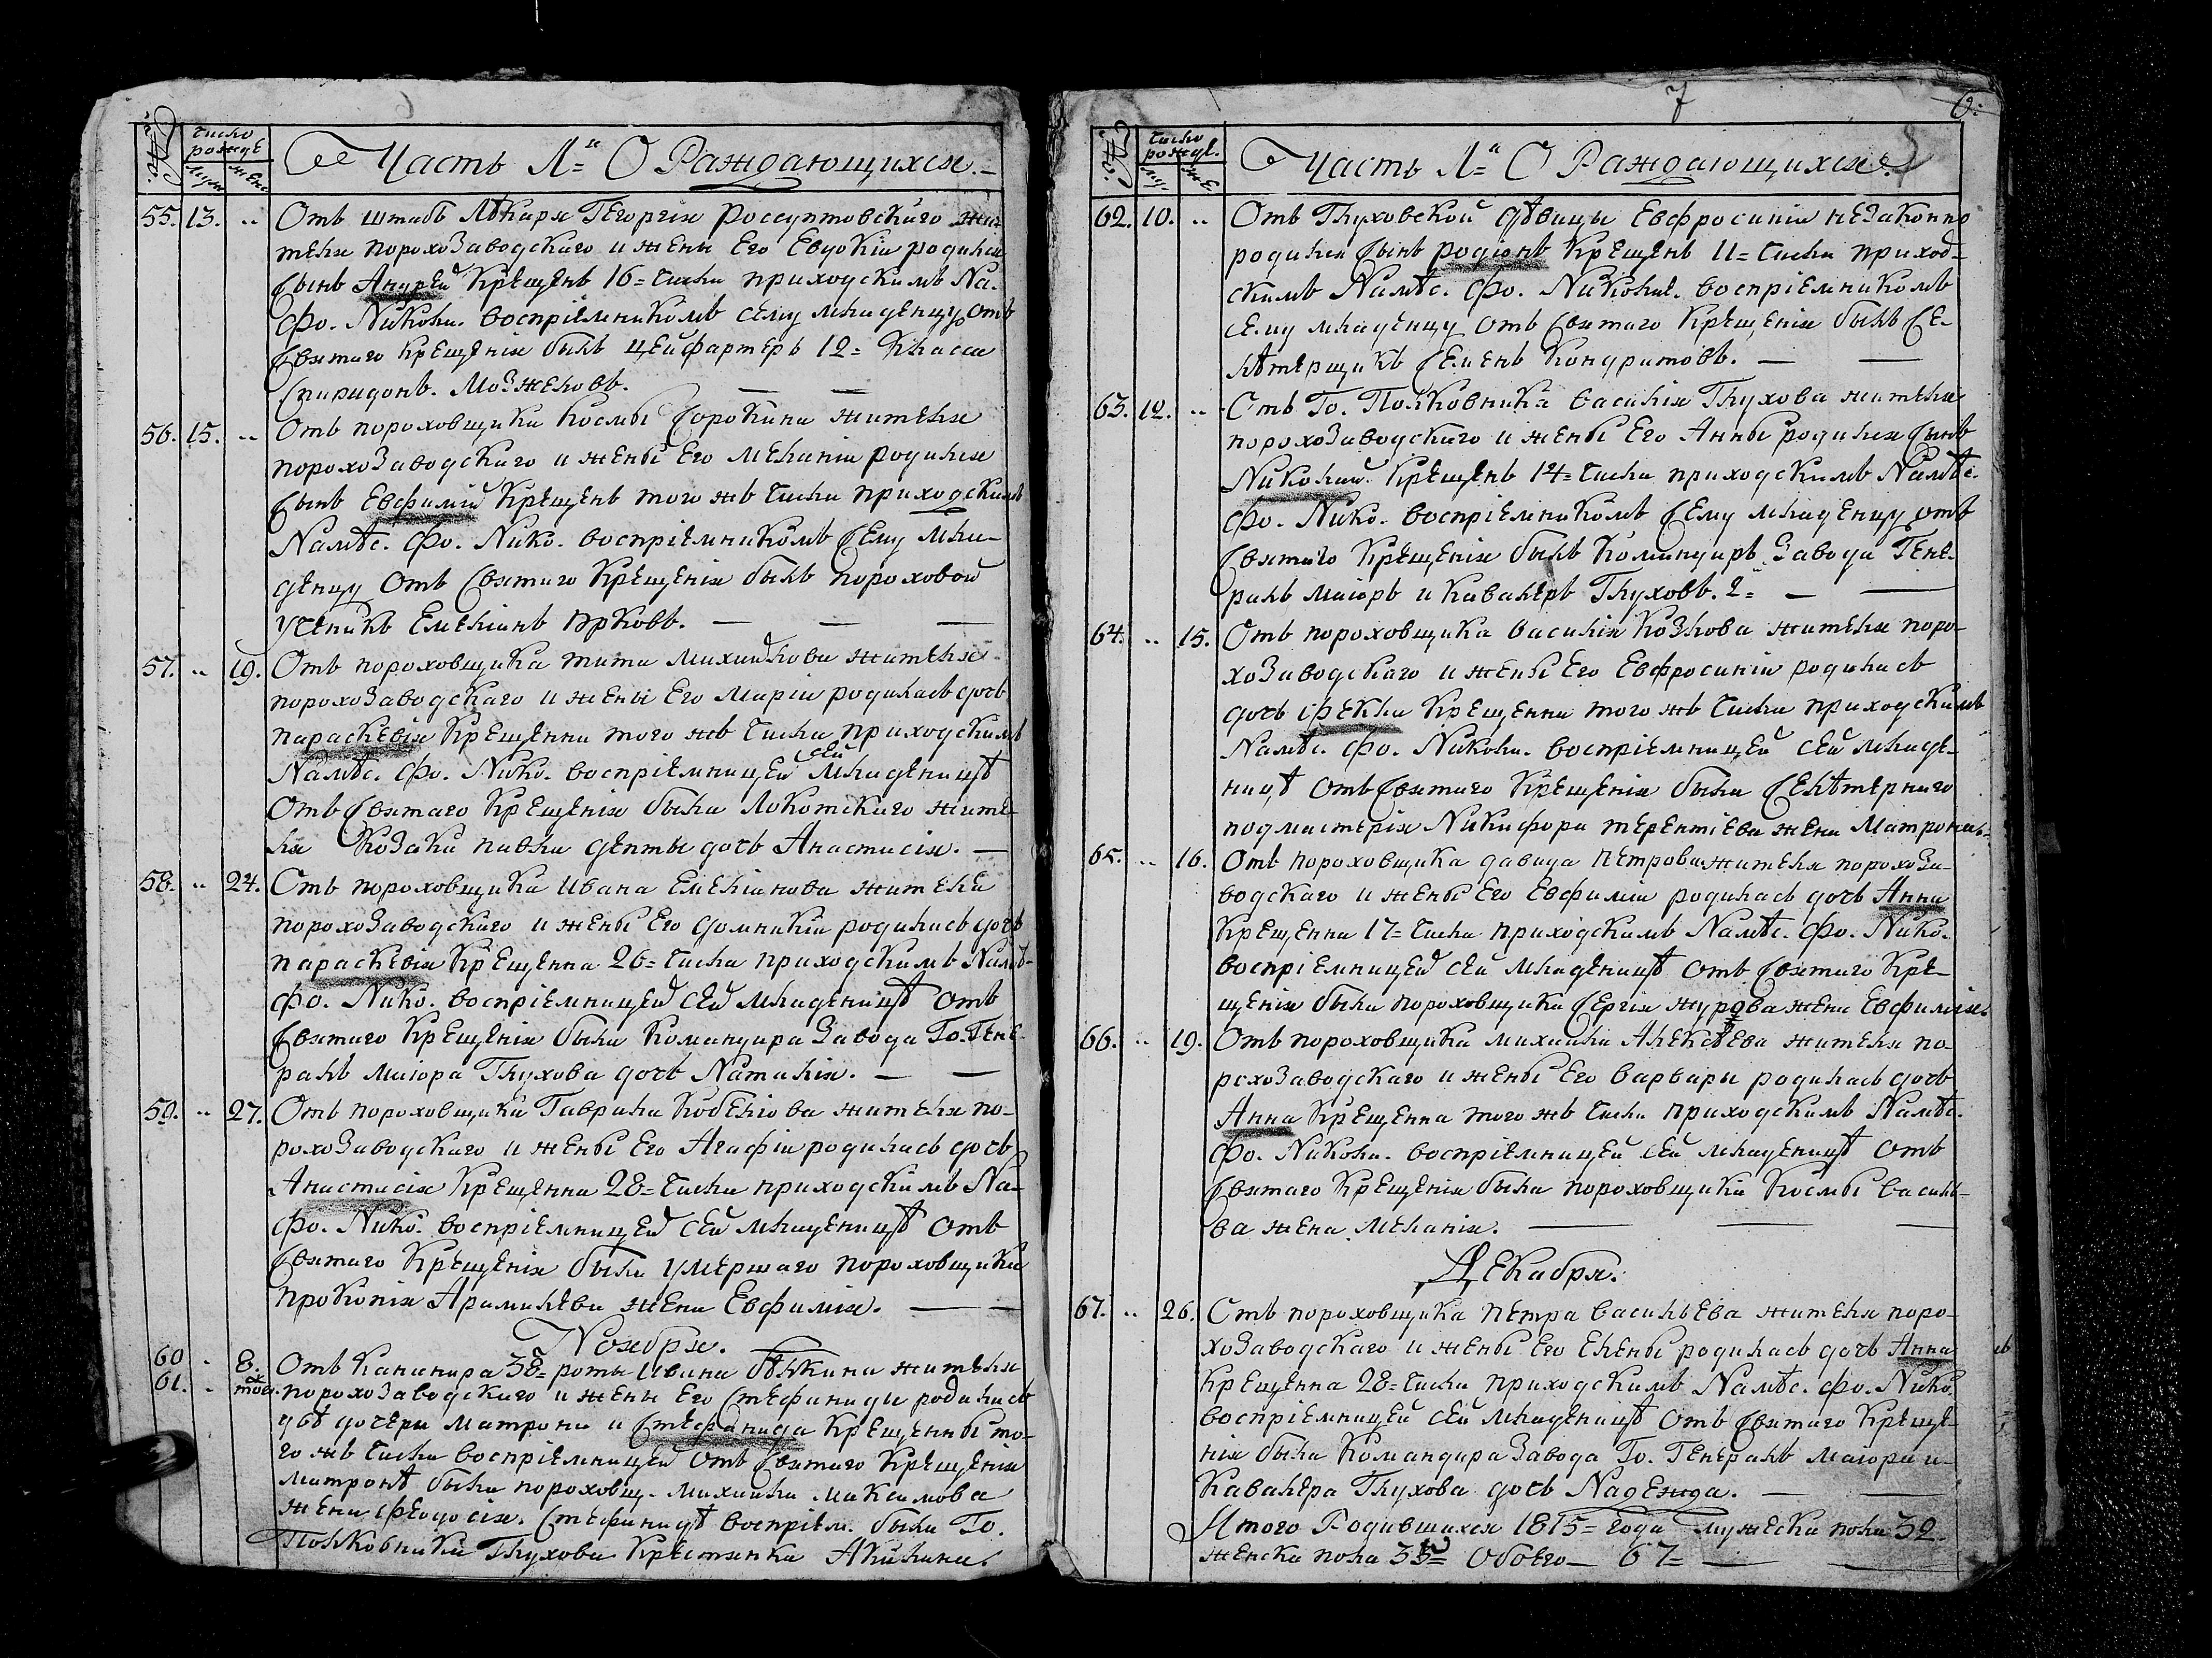 №
число рожде
муж жен
Часть 1.я О Раждающихся.
55. 13. „ Отъ штабъ Лѣкаря Георгія Россуптовскаго жи-
теля порохозаводскаго и жены Его Евдокіи родился
Сынъ Андрей Крещенъ 16= числа приходскимъ На.
Фо. Никола. воспріемникомъ сему младенцу отъ
Святаго Крещенія былъ цейфартеръ 12= Класса
Спиридонъ. Мозжеловъ. —
56. 15. „ Отъ пороховщика Космы Сорокина жителя
порохозаводскаго и жены Его Меланіи родился
Сынъ Евфимій Крещенъ того жъ числа приходскимъ
Намѣс. Фо. Нико. воспріемникомъ Сему мла-
денцу Отъ Святаго Крещенія былъ пороховой
ученикъ Емеліянъ Ярковъ. — — —
57. „ 19. Отъ пороховщика тита михайлова жителя
порохозаводскаго и жены Его Маріи родилась дочь
параскевія Крещенна того жъ числа приходскимъ
Намѣс. Фо. Нико. воспріемницей сей младеницѣ
Отъ Святаго Крещенія была Локотскаго жите-
ля Козака павла депты дочь Анастасія. —
58. „ 24. Отъ пороховщика Ивана Емеліанова жителя
порохозаводскаго и жены Его домникіи родилась дочь
параскевія Крещенна 26= числа приходскимъ Намѣ-
Фо. Нико. воспріемницей сей младеницѣ Отъ
Святаго Крещенія была Командира Завода Го. Гене-
ралъ маіора Глухова дочь Наталія. — —
59. „ 27. Отъ пороховщика Гаврила Кобелюва жителя по-
рохозаводскаго и жены Его Агафіи родилась дочь
Анастасія Крещенна 28= числа приходскимъ На-
Фо. Нико. воспріемницей сей младеницѣ Отъ
Святаго Крещенія была умершаго пороховщика
прокопія Арамилева жена Евфимія. — —
Ноября.
60 „ 8. Отъ Канинира 38= роты Ивана бѣлкина жителя
61. „ того ж порохозаводскаго и жены Его Стефаниды родились
двѣ дочери Матрона и Стефанида Крещенны то-
го жъ числа воспріемницей Отъ Святаго Крещенія
матронѣ была пороховщ. михайла максимова
жена Феодосія. Стефанидѣ воспріем. была Го.
Полковника Глухова Крестьянка Акилина.
7
6.
№
число рожде.
му. же.
Часть 1.я О Раждающихся.
62. 10. „ Отъ Глуховской дѣвицы Евфросиніи незаконно
родился Сынъ родіонъ Крещенъ 11= числа приход-
скимъ Намѣс. Фо. Николае. воспріемникомъ
сему младенцу Отъ Святаго Крещенія былъ Се-
лѣтерщикъ Семенъ Кондратовъ. — —
63. 12. „ Отъ Го. Полковника Василія Глухова жителя
порохозаводскаго и жены Его Анны родился Сынъ
Николай Крещенъ 14= числа приходскимъ Намѣс.
Фо. Нико. воспріемникомъ Сему младенцу отъ
Святаго Крещенія былъ Командиръ Завода Гене-
ралъ маіоръ и Кавалеръ Глуховъ. 2= — —
64. „ 15. Отъ пороховщика Василія Козлова жителя поро-
хозаводскаго и жены Его Евфросиніи родилась
дочь Фекла Крещенна того жъ числа приходскимъ
Намѣс. Фо. Никола. воспріемницей сей младе-
ницѣ Отъ Святаго Крещенія была Селѣтернаго
подмастерія Никифора терентіева жена Матрона.
65. „ 16. Отъ пороховщика давида Петрова жителя порохоза-
водскаго и жены Его Евфиміи родилась дочь Анна
Крещенна 17= числа приходскимъ Намѣс. Фо. Нико.
воспріемницей сей младеницѣ Отъ Святаго Кре-
щенія была пороховщика Сергія журова жена Евфимія.
66. „ 19. Отъ пороховщика михайла Алексѣева жителя по-
рохозаводскаго и жены Его варвары родилась дочь
Анна Крещенна того жъ числа приходскимъ Намѣс.
Фо. Никола. воспріемницей сей младеницѣ Отъ
Святаго Крещенія была пороховщика Космы василь-
ва жена Меланія. — — —
Декабря.
67. „ 26. Отъ пороховщика Петра васильева жителя поро-
хозаводскаго и жены Его Елены родилась дочь Анна
Крещенна 28= числа приходскимъ Намѣс. Фо. Нико.
воспріемницей сей младеницѣ Отъ Святаго Креще-
нія была Командира Завода Го. Генералъ маіора и
Кавалера Глухова дочь Надежда. — —
Итого Родившихся 1815= года мужеска пола 32.
женска пола 35= Обоего — 67= — —